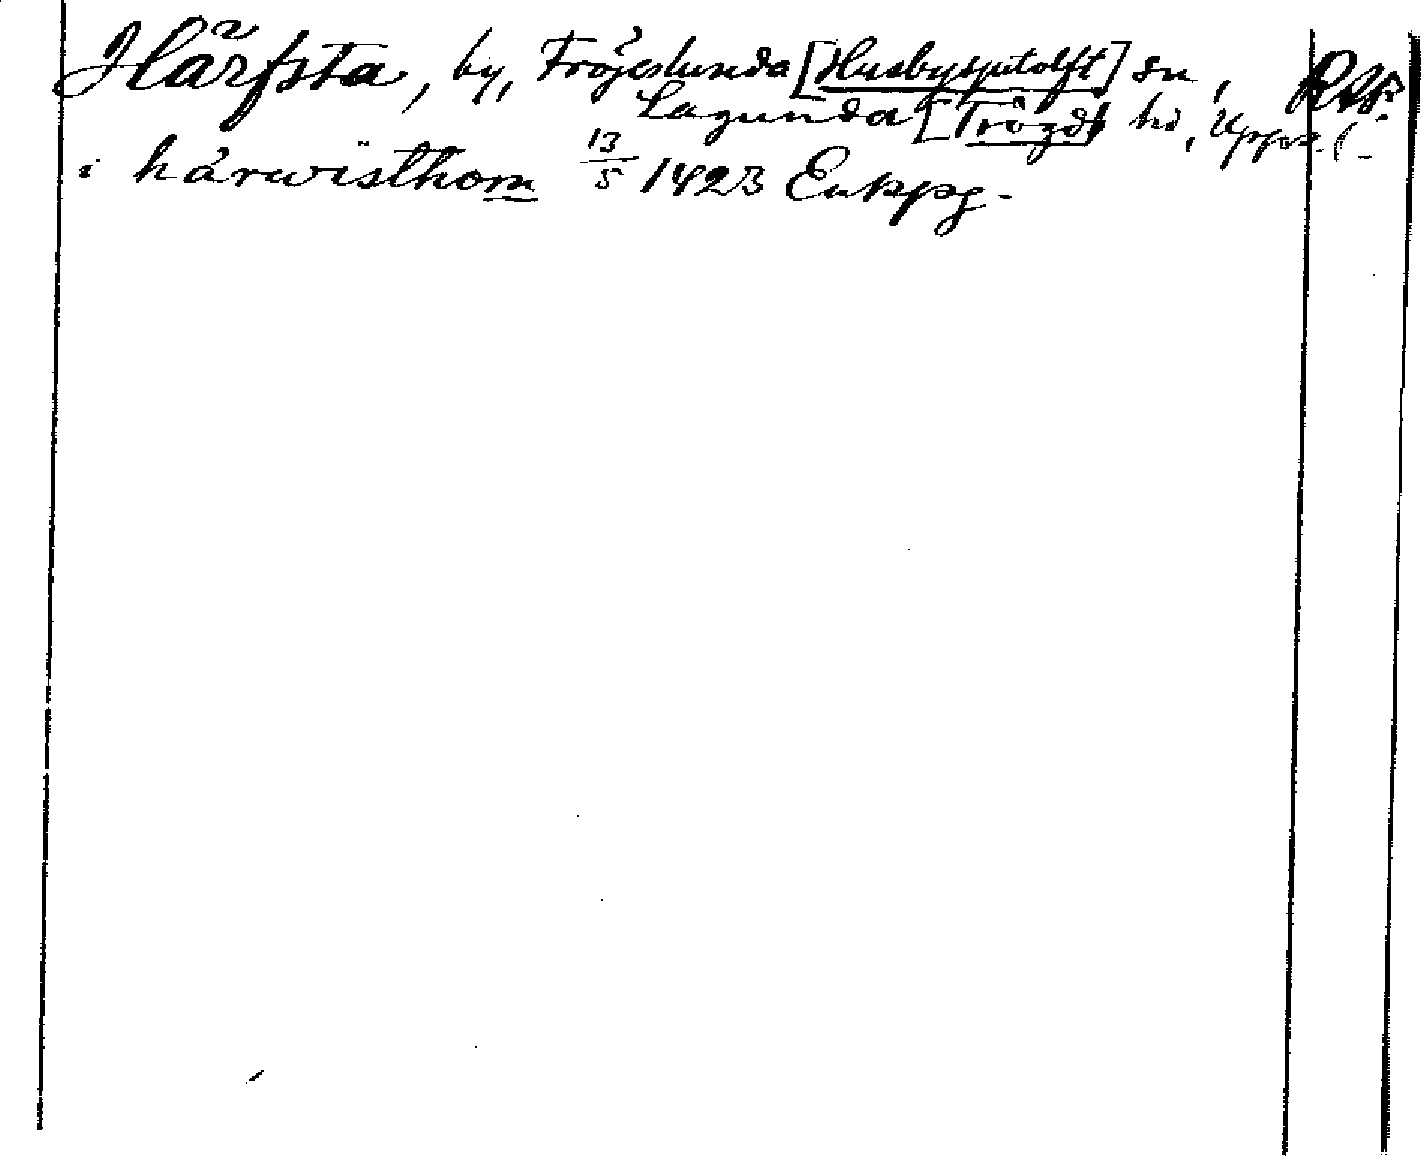 Härfsta, by, Fröjeslunda [Husbysjutolft] sn,
Lagunda [Trögds] hd, Upps. l.
i hårwisthom 13/5 1423 Enkppg.